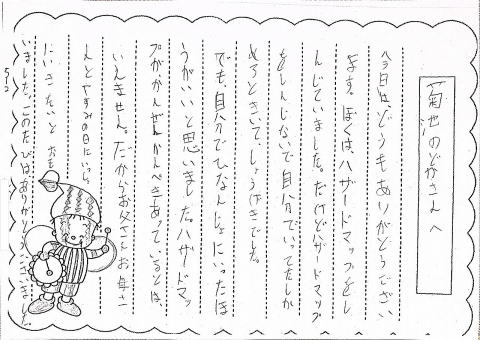 菊池のどかさんへ
今日は、どうもありがとうござい
ます。ぼくは、ハザードマップをし
んじていました。だけどハザードマップ
をしんじないで自分でいってたしか
めるときいて、しょうげきでした。
でも、自分でひなんじょにいったほ
うがいいと思いました。ハザードマッ
プがかんぜんかんぺきであっているとは
いえません。だからお父さんお母さ
んとやすみの日にいっ
にいきたいと おも
いました。このたびはありがとうございました。